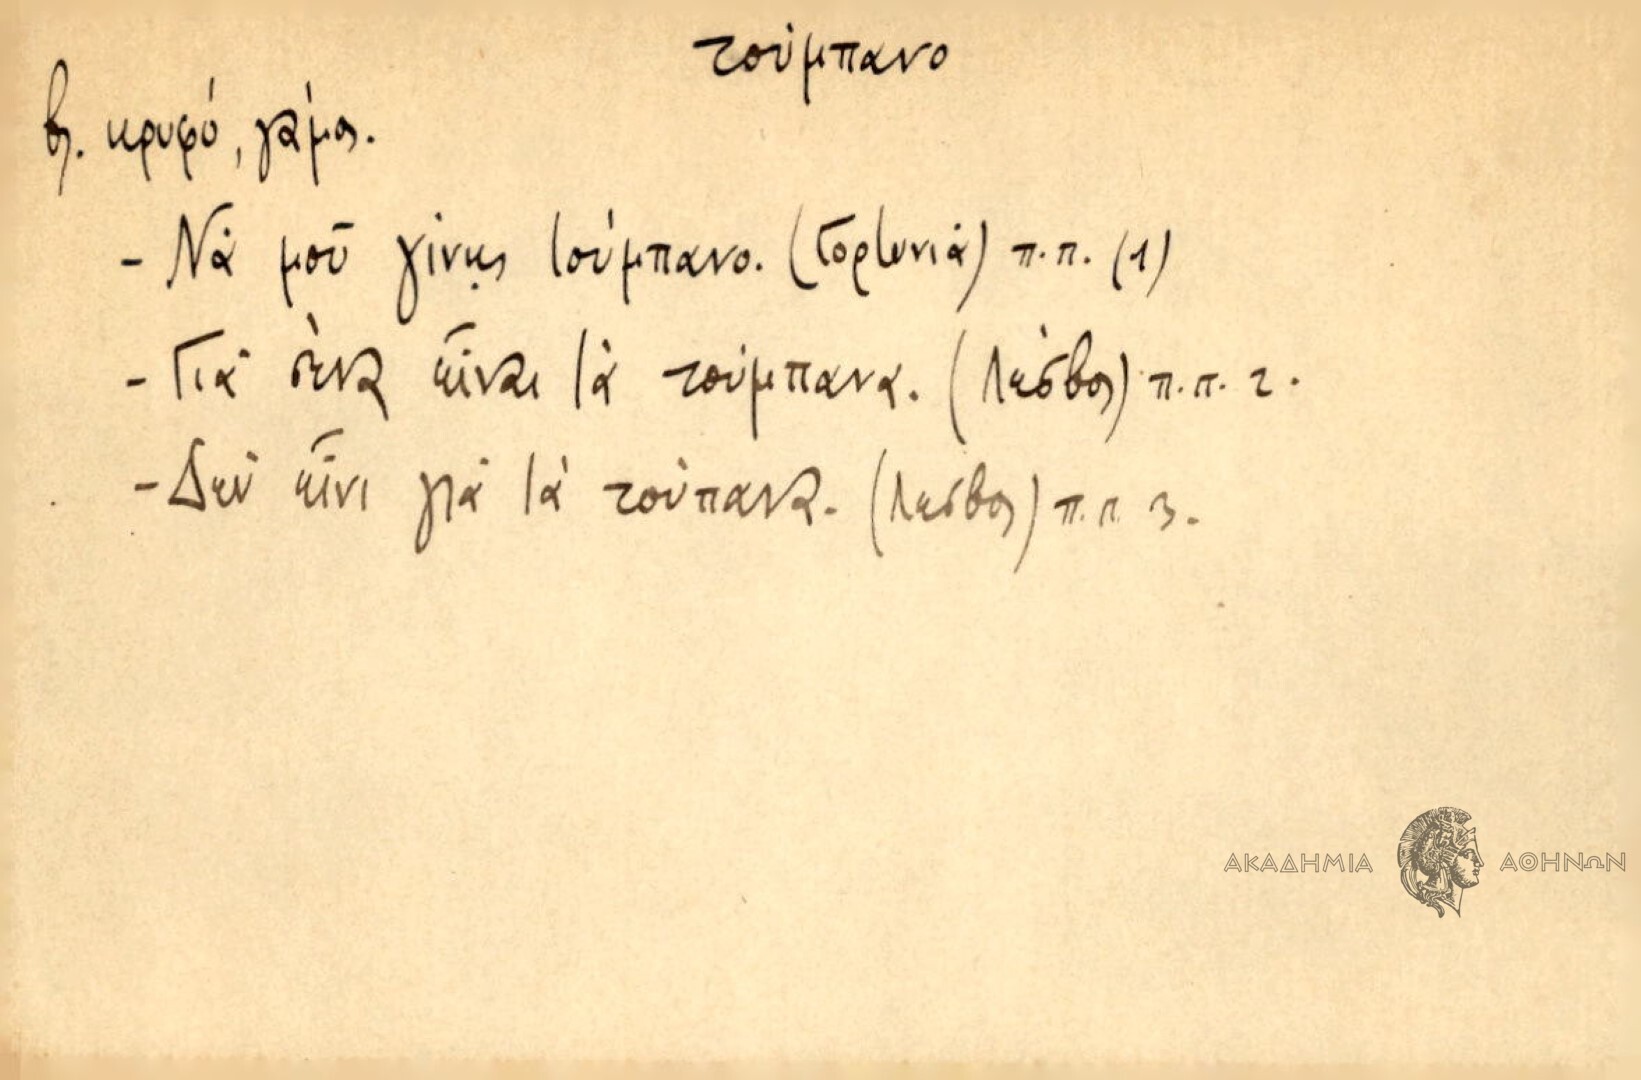 τούμπανο
βλ. κρυφό, γάμος.
- Νὰ μοῦ γίνῃς τούμπανο. (Γορτυνιὰ) π.π. (1)
- Γιὰ σένα εἶναι τὰ τούμπανα. (Λέσβος) π.π. 2.
- Δὲν εἶνι γιὰ τὰ τούπανα. (Λέσβος) π.π. 3.
ΑΚΑΔΗΜΙΑ ΑΘΗΝΩΝ